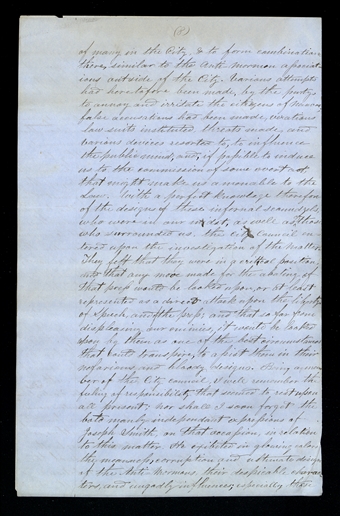 (8)
of many in the City, & to form combinations
there, similar to the Anti Mormon associat
ions outside of the City. Various attempts
had heretofore been made, by the party,
to annoy and irritate the citizens of Nauvoo,
false accusations had been made, vexatious
law suits instituted, threats made, and
various devices resorted to, to influence
the public mind, and, if possible to induce
us to the commission of some overt act
that might make us amenable to the
Law. With a perfect knowledge therefore
of the designs of these infernal scoundrels
who were in our midst, as well as those
who surrounded us, the City Council en-
tered upon the investigation of the matter.
They felt that they were in a critical position,
and that any move made for the abating of
that press would be looked upon, or at least
represented as a direct attack upon the liberty
of Speech, and of the press, and that so far from
displeasing our enemies, it would be looked
upon by them as one of the best circumstances
that could transpire, to assist them in their
nefarious, and bloody designs. Being a mem-
ber of the City Council, I well remember the
feeling of responsibility that seemed to rest upon
all present; nor shall I soon forget the
bold manly independent expressions of
Joseph Smith, on that occasion, in relation
to this matter. He exhibited in glowing colors
the meanness, corruption and ultimate designs
of the Anti-Mormons, their despicable charac-
ters, and ungodly influences, especially those